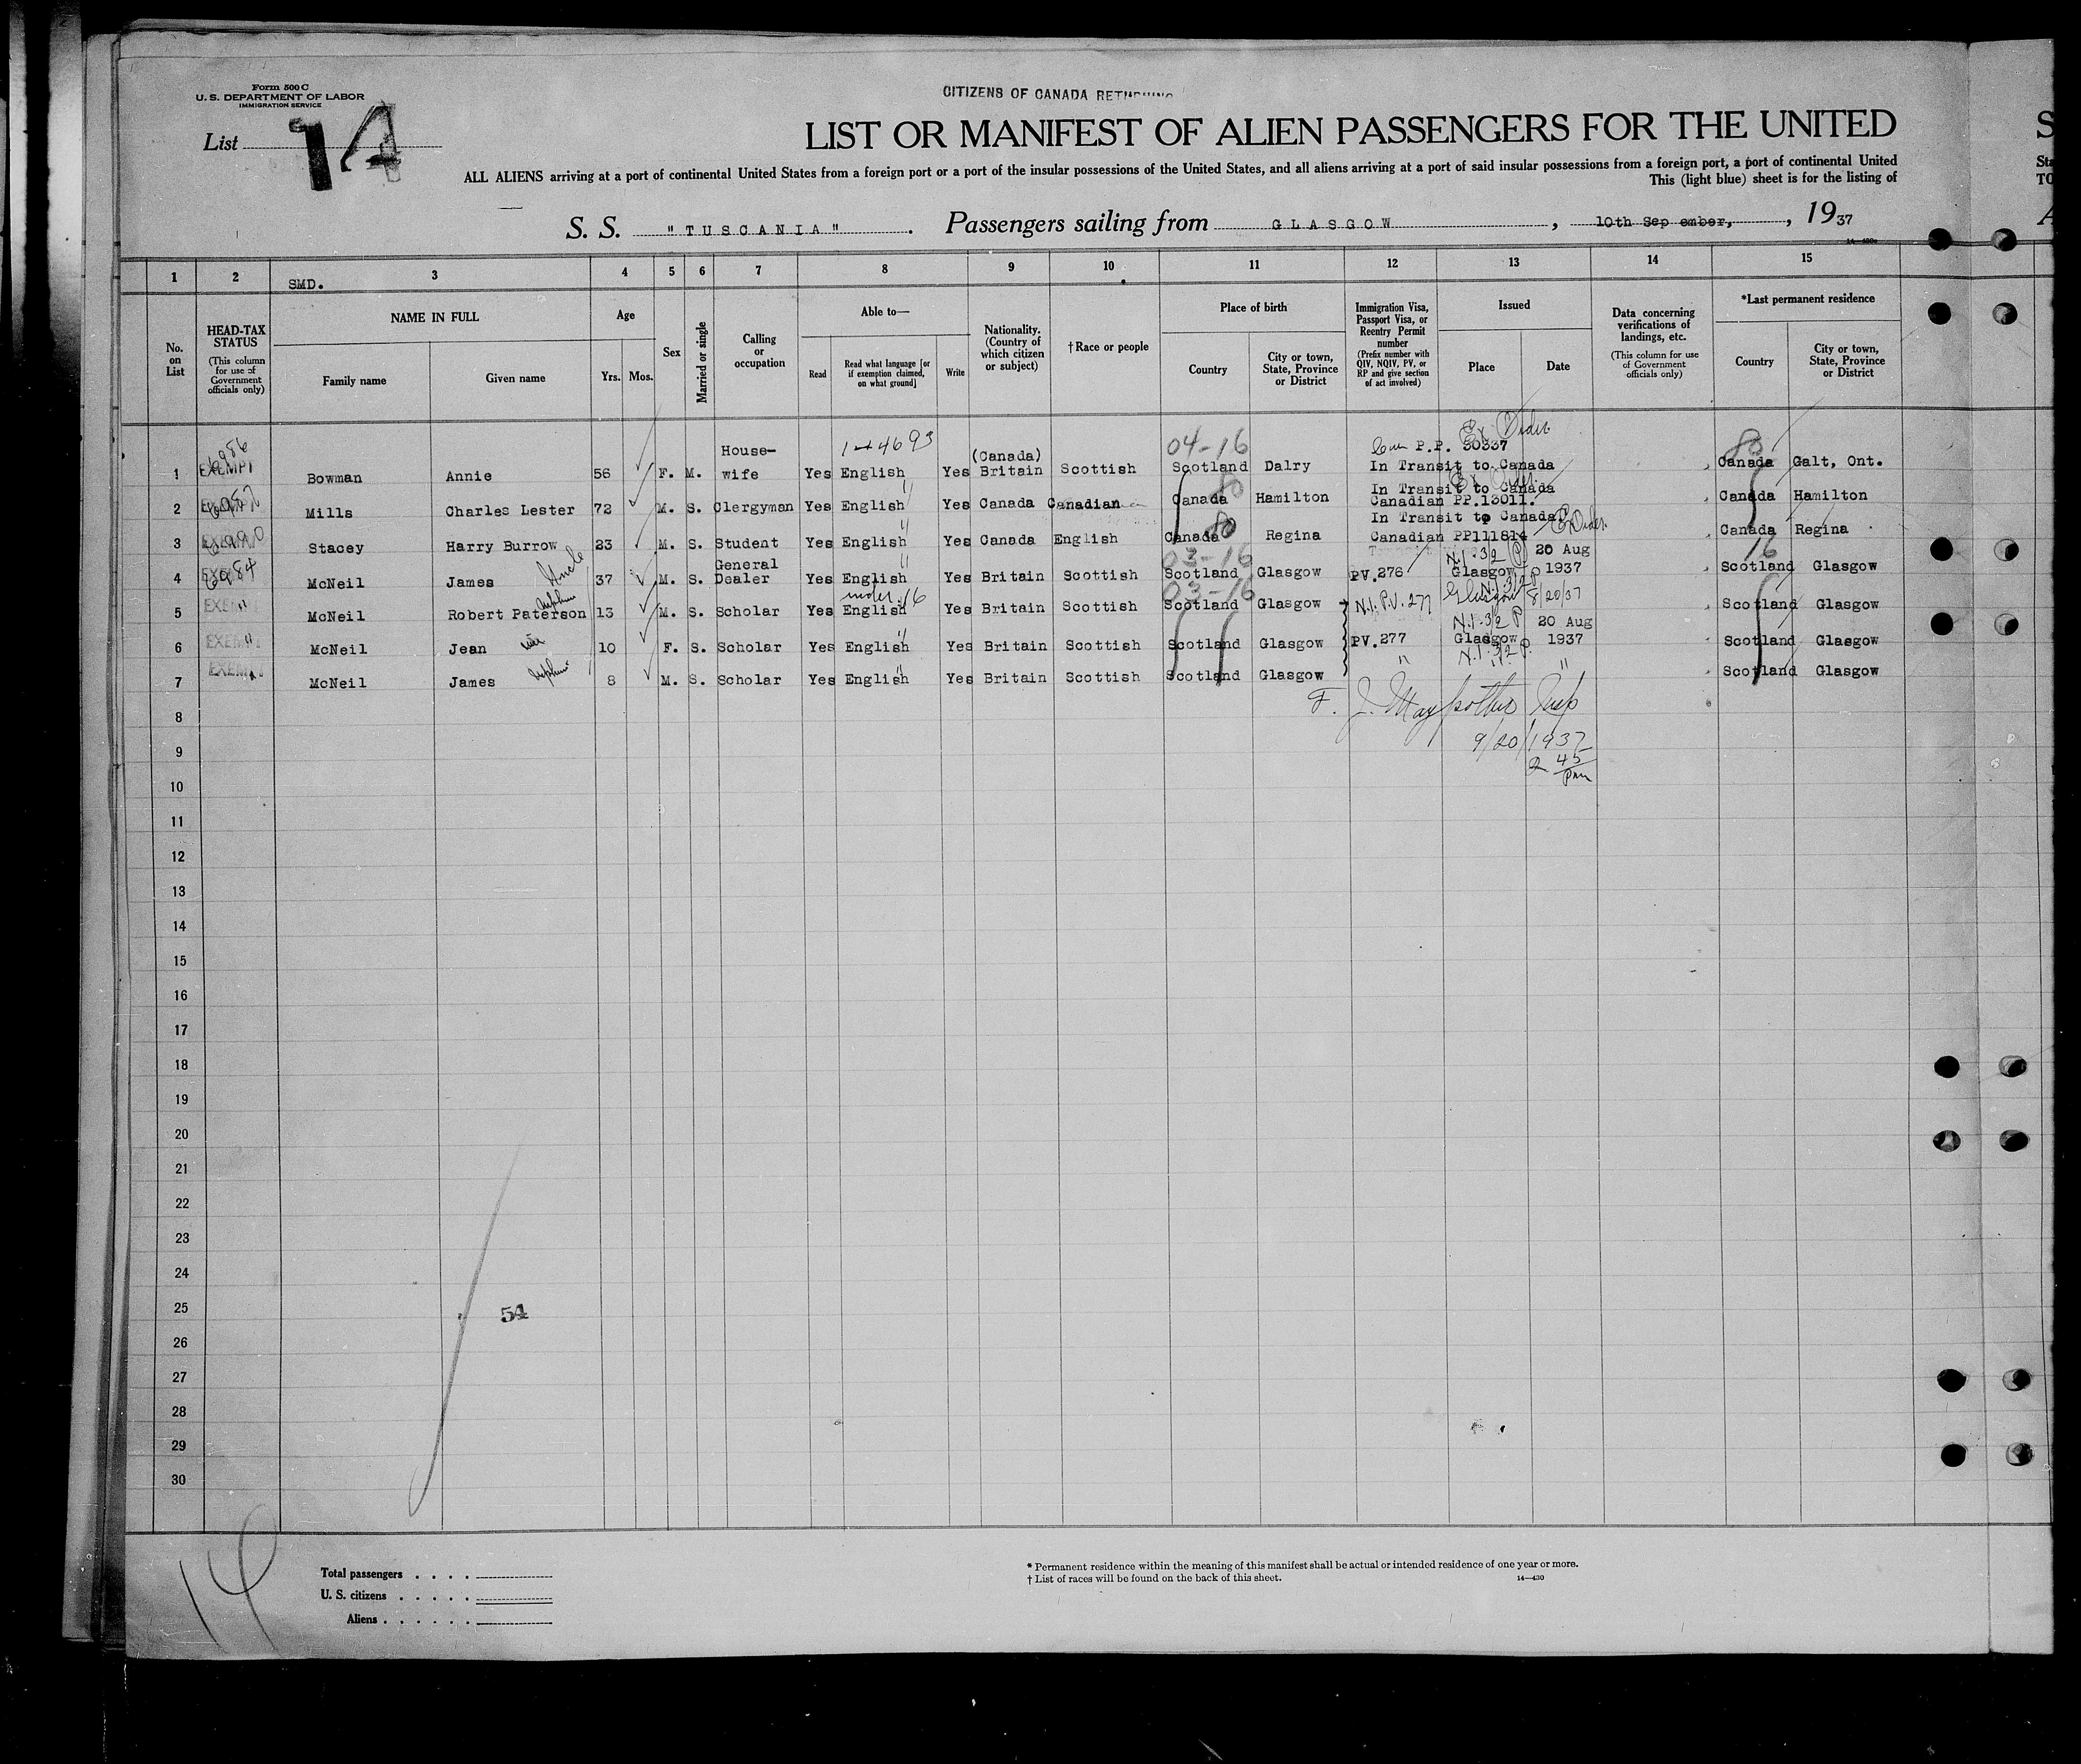 Form 500 C
U. S. DEPARTMENT OF LABOR
IMMIGRATION SERVICE
CITIZENS OF CANADA
List 14
LIST OR MANIFEST OF ALIEN PASSENGERS FOR THE UNITED
S
ALL ALIENS arriving at a port of continental United States from a foreign port or a port of the insular possessions of the United States, and all aliens arriving at a port of said insular possessions from a foreign port, a port of continental United
Sta
This (light blue) sheet is for the listing of
TO
S. S. "TUSCANIA". Passengers sailing from GLASGOW, 10th Sep ember, , 1937
A
1 2 3 4 5 6 7 8 9 10 11 12 13 14 15
SMD.
No. on List
HEAD-TAX STATUS (This column for use of Government officials only)
NAME IN FULL
Family name Given name
Age
Yrs. Mos.
Sex
Married or single
Calling or occupation
Able to—
Read Read what language [or if exemption claimed, on what ground] Write
Nationality. (Country of which citizen or subject)
†Race or people
Place of birth
Country City or town, State, Province or District
Immigration Visa, Passport Visa, or Reentry Permit number (Prefix number with QIV, NQIV, PV, or RP and give section of act involved)
Issued
Place Date
Data concerning verifications of landings, etc. (This column for use of Government officials only)
*Last permanent residence
Country City or town, State, Province or District
04-16 80
1 EXEMPT Bowman Annie 56 F. M. House-wife Yes English Yes (Canada) Britain Scottish Scotland Dalry P.P. 30337 In Transit to Canada Canada Galt, Ont.
2 Mills Charles Lester 72 M. S. Clergyman Yes English " Yes Canada Canadian Canada 80 Hamilton In Transit to Canada Canadian PP.13011. Canada Hamilton
3 Stacey Harry Burrow 23 M. S. Student Yes English " Yes Canada English Canada 80 Regina In Transit to Canada Canadian PP111814 Canada Regina
03-16 16
4 McNeil James Uncle 37 M. S. General Dealer Yes English " Yes Britain Scottish Scotland Glasgow PV.276 Glasgow 20 Aug 1937 Scotland Glasgow
03-16
5 McNeil Robert Paterson nephew 13 M. S. Scholar Yes under 16 English Yes Britain Scottish Scotland Glasgow N.I. P.V. 277 Glasgow 8/20/37 Scotland Glasgow
6 McNeil Jean 10 F. S. Scholar Yes English " Yes Britain Scottish Scotland Glasgow PV.277 Glasgow 20 Aug 1937 Scotland Glasgow
7 McNeil James nephew 8 M. S. Scholar Yes English " Yes Britain Scottish Scotland Glasgow " " " Scotland Glasgow
8
F. J. Insp
9
9/20/1937
2 45 pm
10
11
12
13
14
15
16
17
18
19
20
21
22
23
24
25 54
26
27
28
29
30
14
Total passengers
U. S. citizens
Aliens
* Permanent residence within the meaning of this manifest shall be actual or intended residence of one year or more.
† List of races will be found on the back of this sheet.
14—430